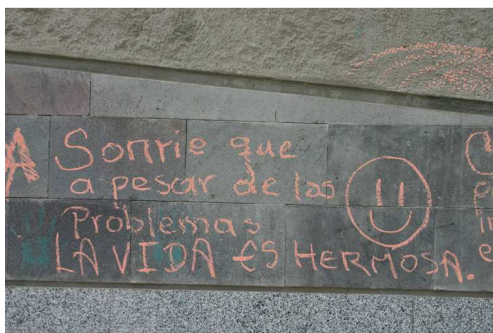 Sonrie que
a pesar de las
Problemas
LA VIDA ES HERMOSA.